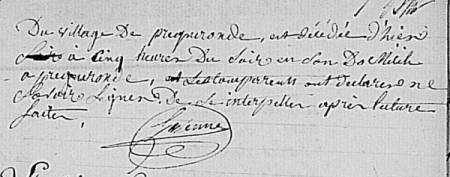 Du village De prequeronde, est décédée d'hier
soir à Cinq heures Du Soir en Son Domicile
a prequeronde, et les comparents ont declarés ne
Savoir Signer De ce interpeller après lecture
faite,